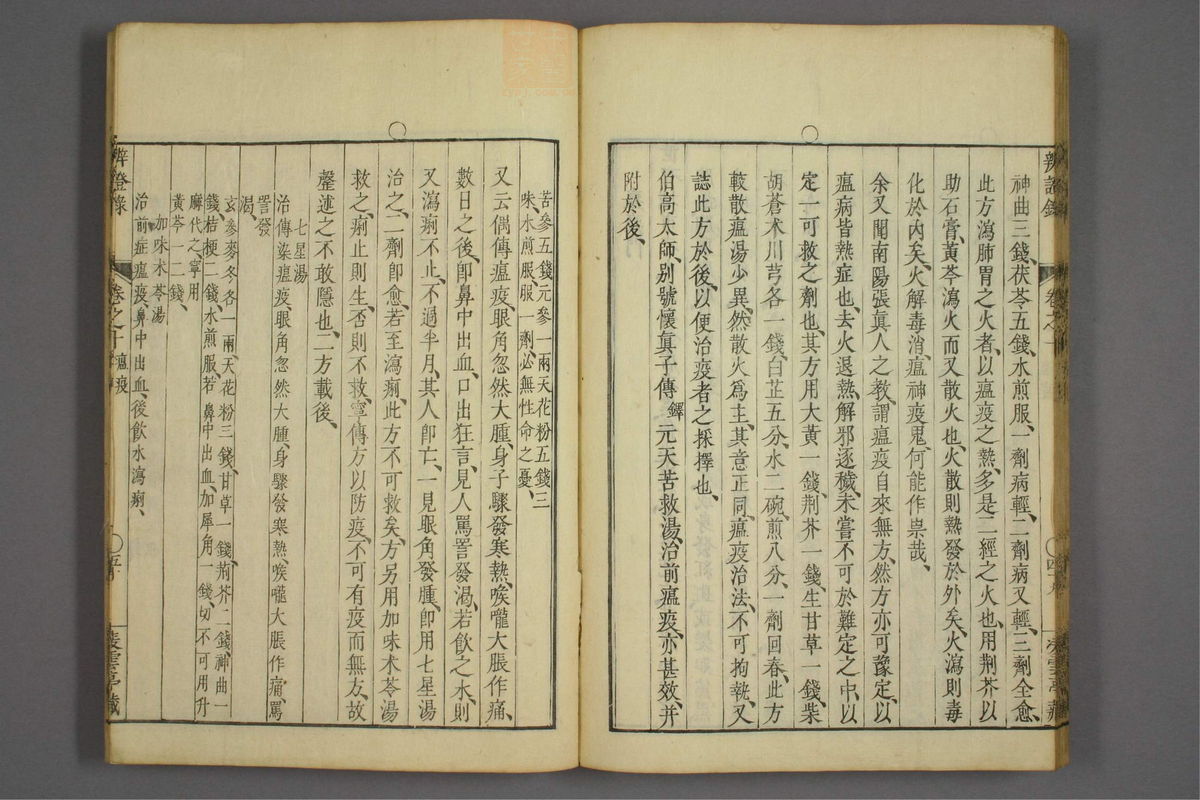 神曲三錢、茯苓五錢、水煎服、一劑病輕、二劑病又輕、三劑全愈、
此方瀉肺胃之火者、以瘟疫之熱、多是二經之火也、用荆芥以
助石膏、黃芩瀉火、而又散火也、火散則熱發於外矣、火瀉則毒
化於內矣、火解毒消、瘟神疫鬼、何能作祟哉、
余又聞南陽張眞人之教、謂瘟疫自來無方、然方亦可豫定、以
瘟病皆熱症也、去火退熱、解邪逐穢、未嘗不可於難定之中、以
定一可救之劑也、其方用大黃一錢、荆芥一錢、生甘草一錢、柴
胡蒼术川芎各一錢、白芷五分、水二碗、煎八分、一劑回春、此方
較散瘟湯少異、然散火爲主、其意正同、瘟疫治法、不可拘執、又
誌此方於後、以便治疫者之採擇也、
伯高太師、别號懷眞子傳鐸元天苦救湯、治前瘟疫亦甚效、并
附於後、
苦參五錢元參一兩天花粉五錢三
味、水煎服、服一劑必無性命之憂、
又云偶傳瘟疫、眼角忽然大腫、身子驟發寒熱、喉嚨大脹作痛、
數日之後、卽鼻中出血、口出狂言、見人罵詈發渴、若飲之水、則
又瀉痢不止、不過半月、其人卽亡、一見眼角發腫、卽用七星湯
治之、二劑卽愈、若至瀉痢、此方不可救矣、方另用加味术苓湯
救之、痢止則生、否則不救、寧傳方以防疫、不可有疫而無方、故
罄述之不敢隱也、二方載後、
七星湯
治傳染瘟疫眼角忽然大腫、身驟發寒熱、喉嚨大脹作痛、罵
詈發
渴、
玄參麥冬各一兩天花粉三錢、甘草一錢、荆芥二錢、神曲一
錢、桔梗二錢、水煎服、若鼻中出血、加犀角一錢、切不可用升
麻代之、寧用
黃芩一二錢、
加味术苓湯
治前症瘟疫、鼻中出血、後飲水瀉痢、
辨證錄
卷之十
瘟疫
五十